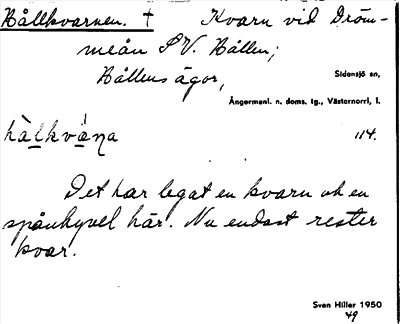 Hållkvarnen. † Kvarn vid Dröm-
meån S V. Hållen;
Hållens ägor,
Sidensjö sn,
Ångermanl. n. doms. tg., Västernorrl. l.
hålkvàṇa 114.
Det har legat en kvarn ock en
spånhyvel här. Nu endast rester
kvar.
Sven Hiller 1950
49